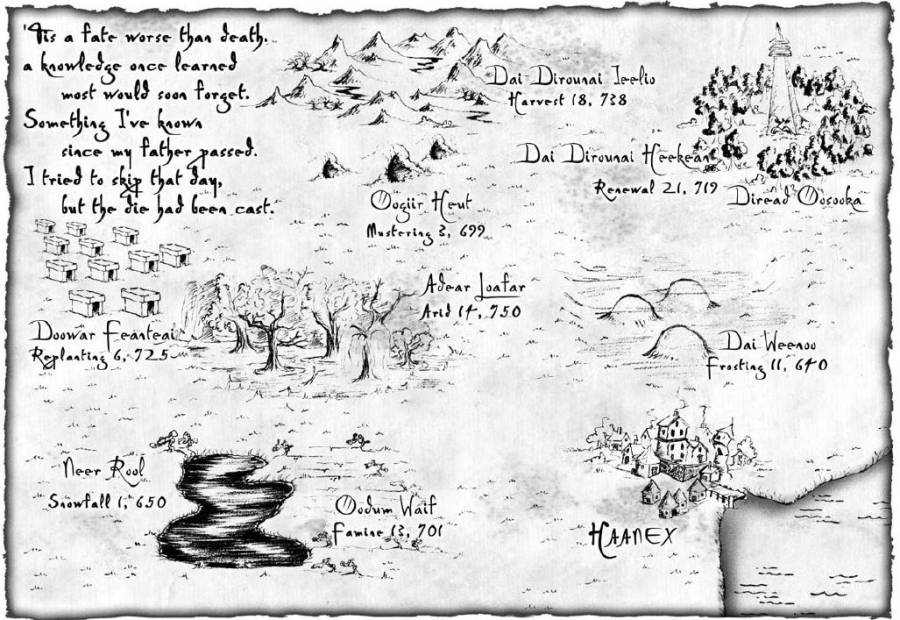 'Tis a fate worse than death.
a knowledge once learned
most would soon forget.
Something I've known
since my father passed.
I tried to skip that day,
but the die had been cast.
Dai Dirounai Ieelio
Harvest 18, 738
Dai Dirounai Heekean
Renewal 21, 719
Diread Oosooka
Oogiir Heut
Mustering 3, 699
Adear Loafar
Arid 14, 750
Doowar Feanteai
Replanting 6, 725
Dai Weenoo
Frosting 11, 640
Neer Rool
Snowfall 1, 650
Oodum Waif
Famine 13, 701
HAANEX